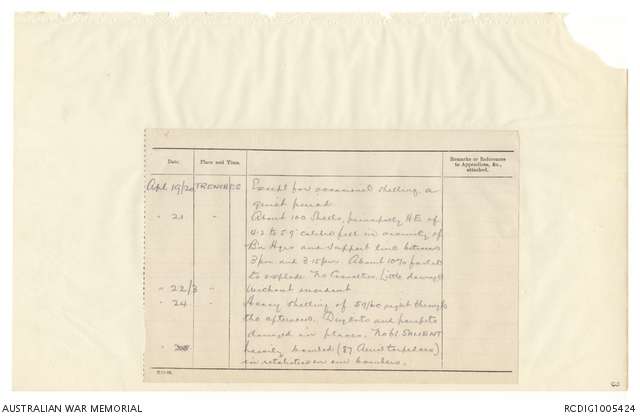 Date.
Place and Time.
Remarks or References
to Appendices, &c.,
attached.
Apl 19/20 TRENCHES Except for occasional shelling a
quiet period
" 21 " About 100 Shells, principally HE of
4.2 to 5.9" calibre fell in vicinity of
Bn Hqrs and support line between
3pm and 3.15pm. About 10% failed
to explode. No Casualties, Little damage
" 22/3 " Without incident
" 24 " Heavy shelling of right through
the afternoon. Dugouts and parapets
damaged in places. No 61 SALIENT
" " heavily bombed (87 )
in retaliation our bombers.
AUSTRALIAN WAR MEMORIAL
RCDIG1005424